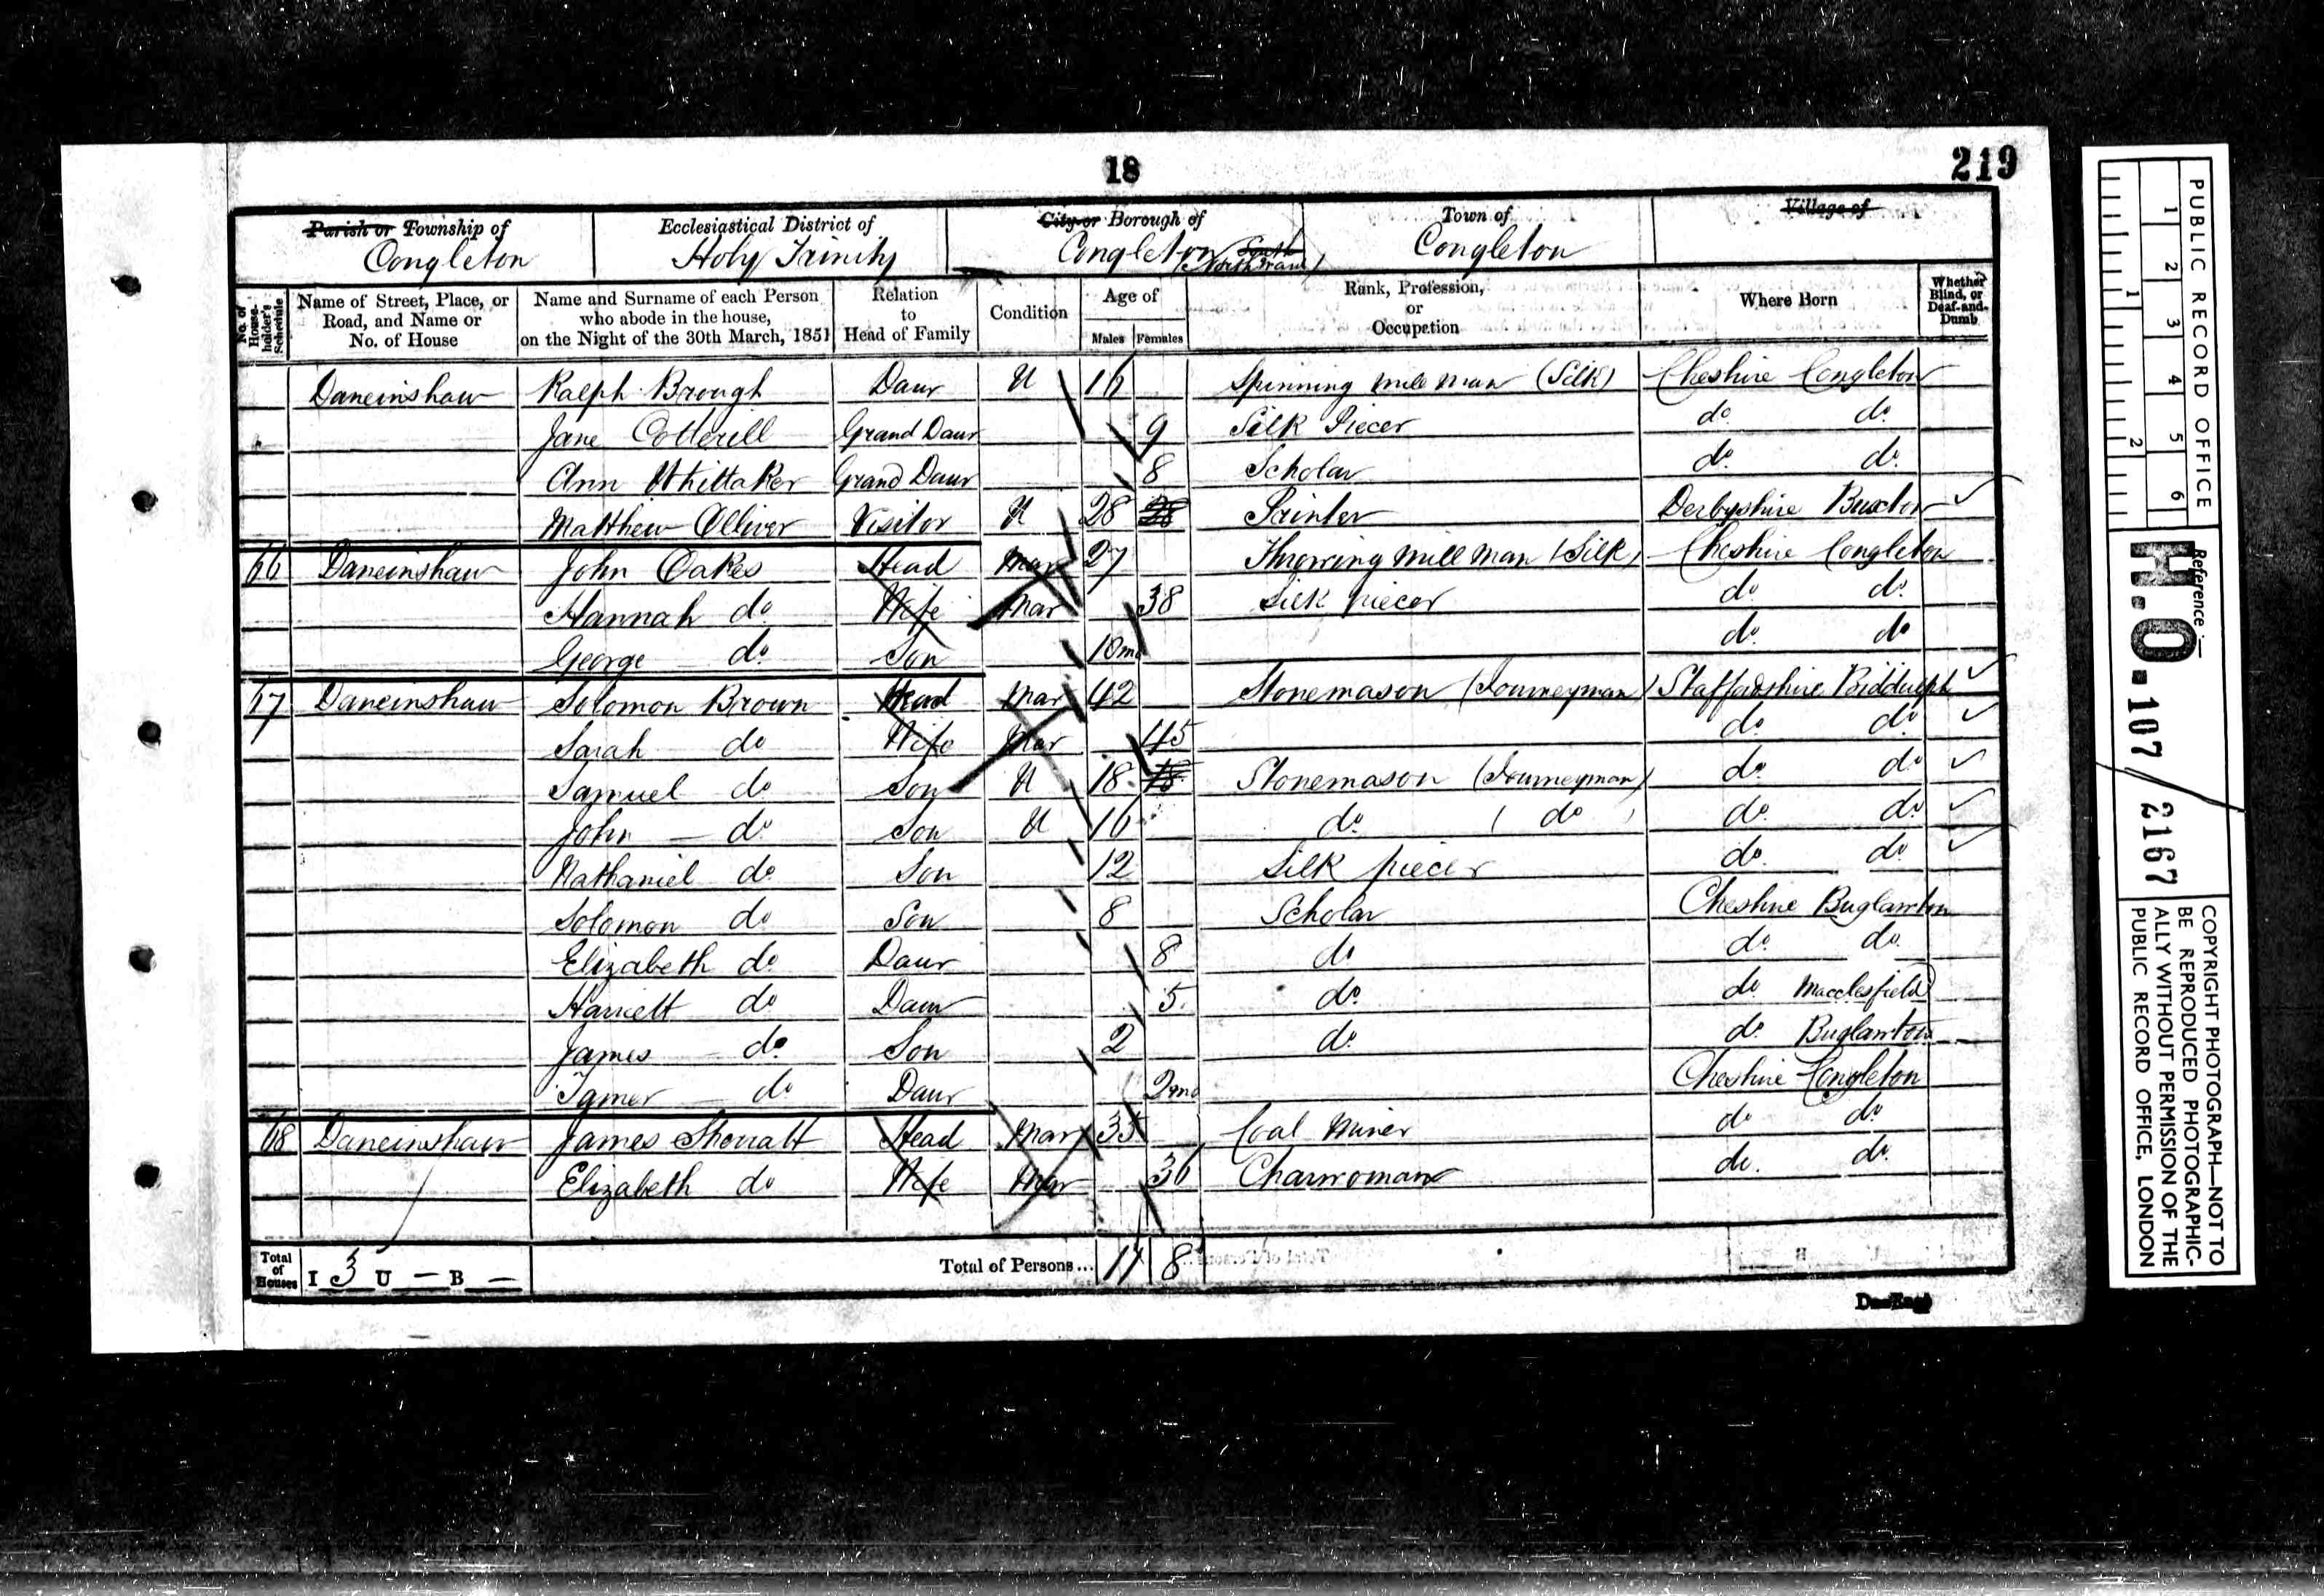 18
219
Parish or Township of
Congleton
Ecclesiastical District of
Holy Trinity
City or Borough of
Congleton South
(North Ward)
Town of
Congleton
Village of
No. of House-holder's Schedule
Name of Street, Place, or Road, and Name or No. of House
Name and Surname of each Person who abode in the house, on the Night of the 30th March, 1851
Relation to Head of Family
Condition
Age of
Males Females
Rank, Profession, or Occupation
Where Born
Whether Blind, or Deaf-and-Dumb
Daneinshaw Ralph Brough Daur U 16 Spinning mill man (Silk) Cheshire Congleton
Jane Cotterill Grand Daur 9 Silk Piecer do do
Ann Whittaker Grand Daur 8 Scholar do do
Matthew Olliver Visitor U 28 28 Printer Derbyshire Buxton
66 Daneinshaw John Oakes Head Mar 27 Throwing mill man (Silk) Cheshire Congleton
Hannah do Wife Mar 38 Silk piecer do do
George do Son 10mo do do
67 Daneinshaw Solomon Brown Head Mar 42 Stonemason (Journeyman) Staffordshire Biddulph
Sarah do Wife Mar 45 do do
Samuel do Son U 18 18 Stonemason (Journeyman) do do
John do Son U 16 do (do) do do
Nathaniel do Son 12 Silk piecer do do
Solomon do Son 8 Scholar Cheshire Buglawton
Elizabeth do Daur 8 do do do
Harriett do Daur 5 do do Macclesfield
James do Son 2 do do Buglawton
Tamer do Daur 2mo Cheshire Congleton
68 Daneinshaw James Shorratt Head Mar 35 Coal Miner do do
Elizabeth do Wife Mar 36 Charwoman do do
Total of Houses I 3 U — B — Total of Persons... 11 8
PUBLIC RECORD OFFICE
1 2 3 4 5 6
1 2
Reference:—
H.O. 107/2167
COPYRIGHT PHOTOGRAPH—NOT TO
BE REPRODUCED PHOTOGRAPHIC-
ALLY WITHOUT PERMISSION OF THE
PUBLIC RECORD OFFICE, LONDON